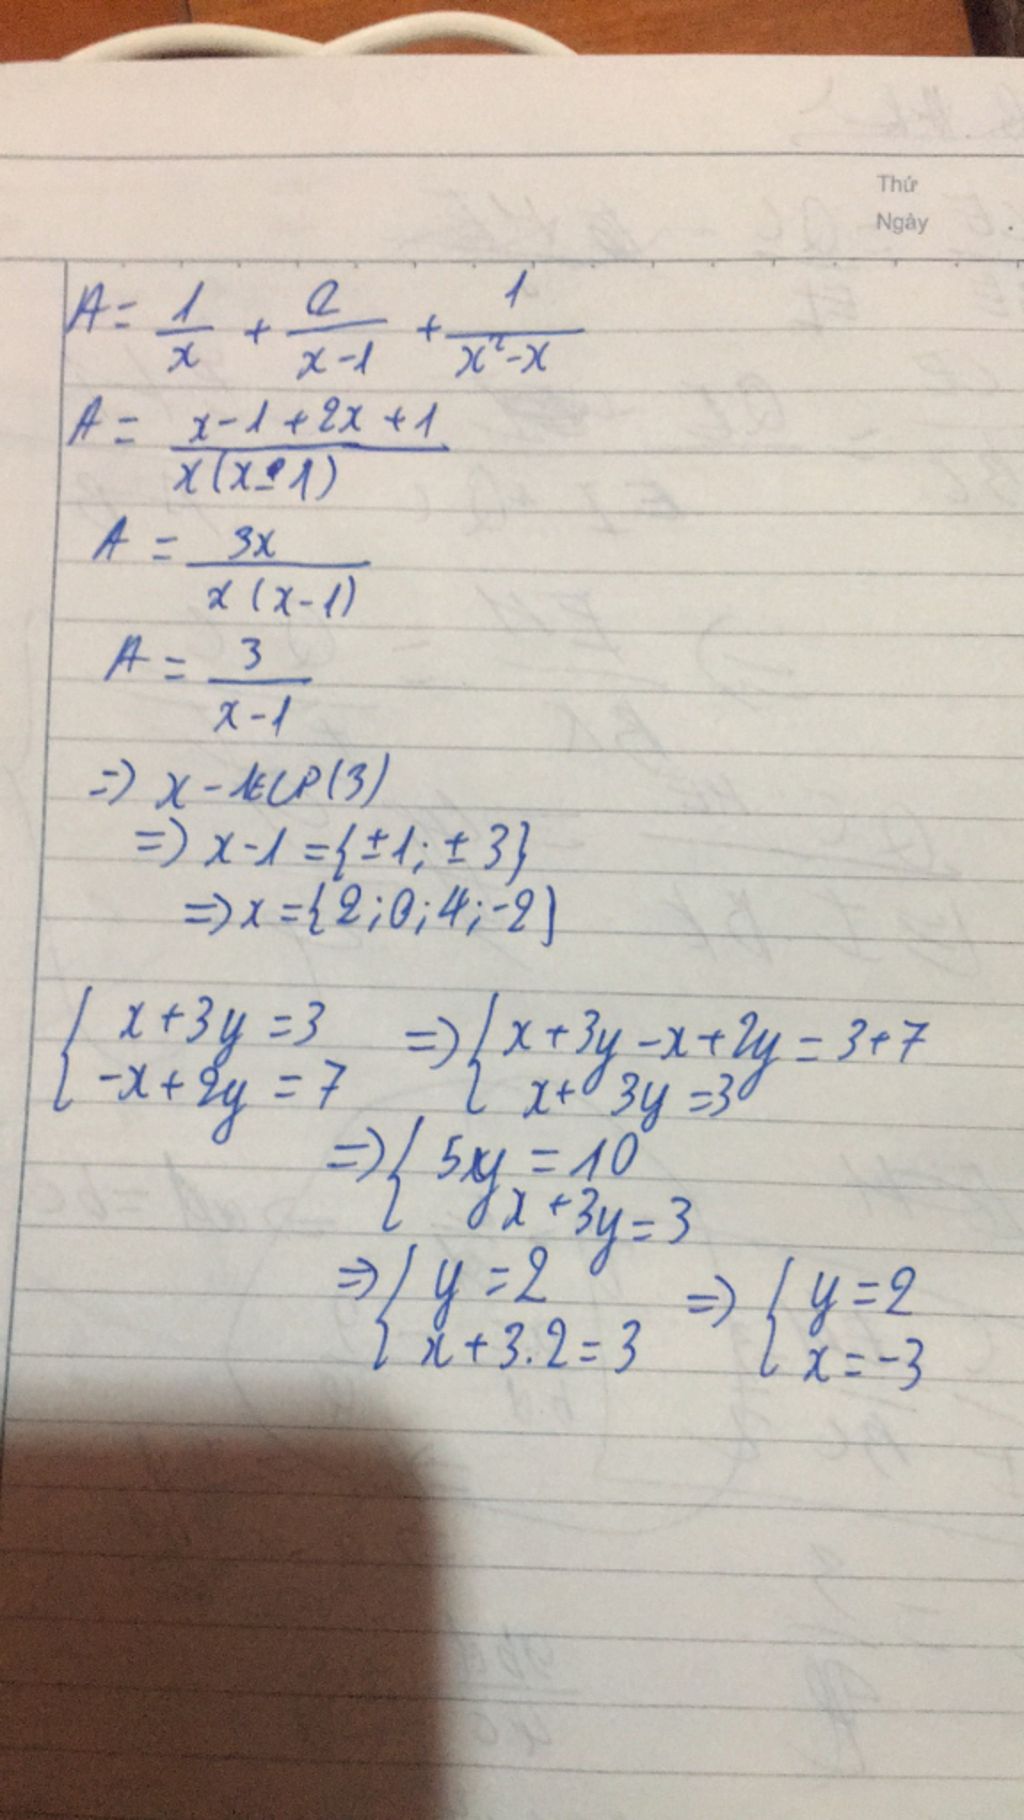 Thứ
Ngày
A = 1/x + 2/(x-1) + 1/(x²-x)
A = (x-1+2x+1)/(x(x-1))
A = 3x/(x(x-1))
A = 3/(x-1)
=> x-1∈Ư(3)
=> x-1 = {±1; ±3}
=> x = {2; 0; 4; -2}
{ x+3y = 3 => { x+3y-x+2y = 3+7
-x+2y = 7 x+ 3y = 3
=> { 5y = 10
x+3y = 3
=> { y = 2 => { y = 2
x+3.2 = 3 x = -3